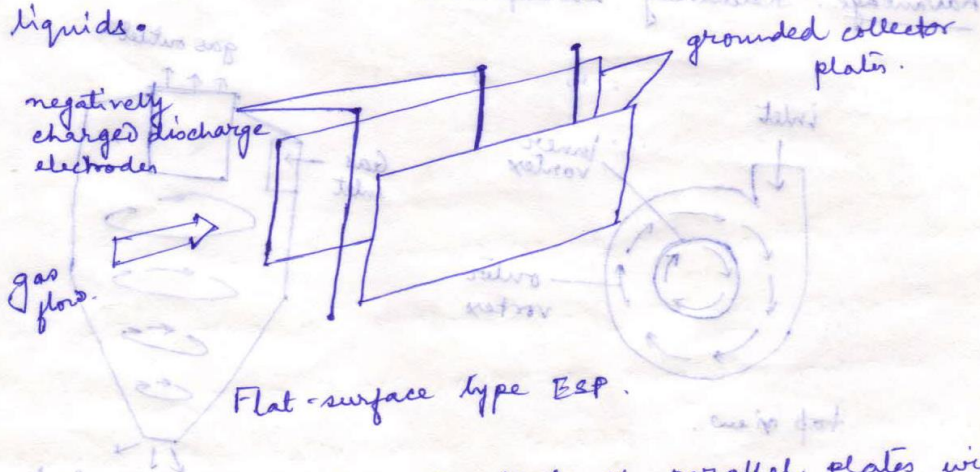 liquids.
grounded collector
plates.
negatively
charged discharge
electrodes
gas
flow.
Flat-surface type ESP.
parallel plates